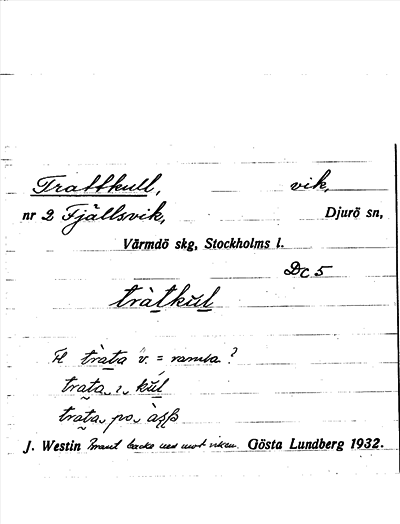 Trattkull, vik,
nr 2 Fjällsvik, Djurö sn,
Värmdö skg, Stockholms l.
Dc 5
tràtkul
tràta v. = ramla ?
trata, i, kúl
trata, po,
J. Westin Brant backe ned mot viken. Gösta Lundberg 1932.